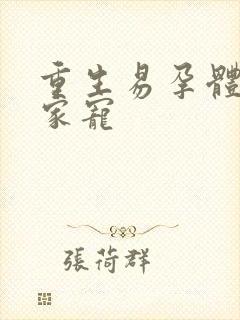 重生易孕體
家寵
張荷群